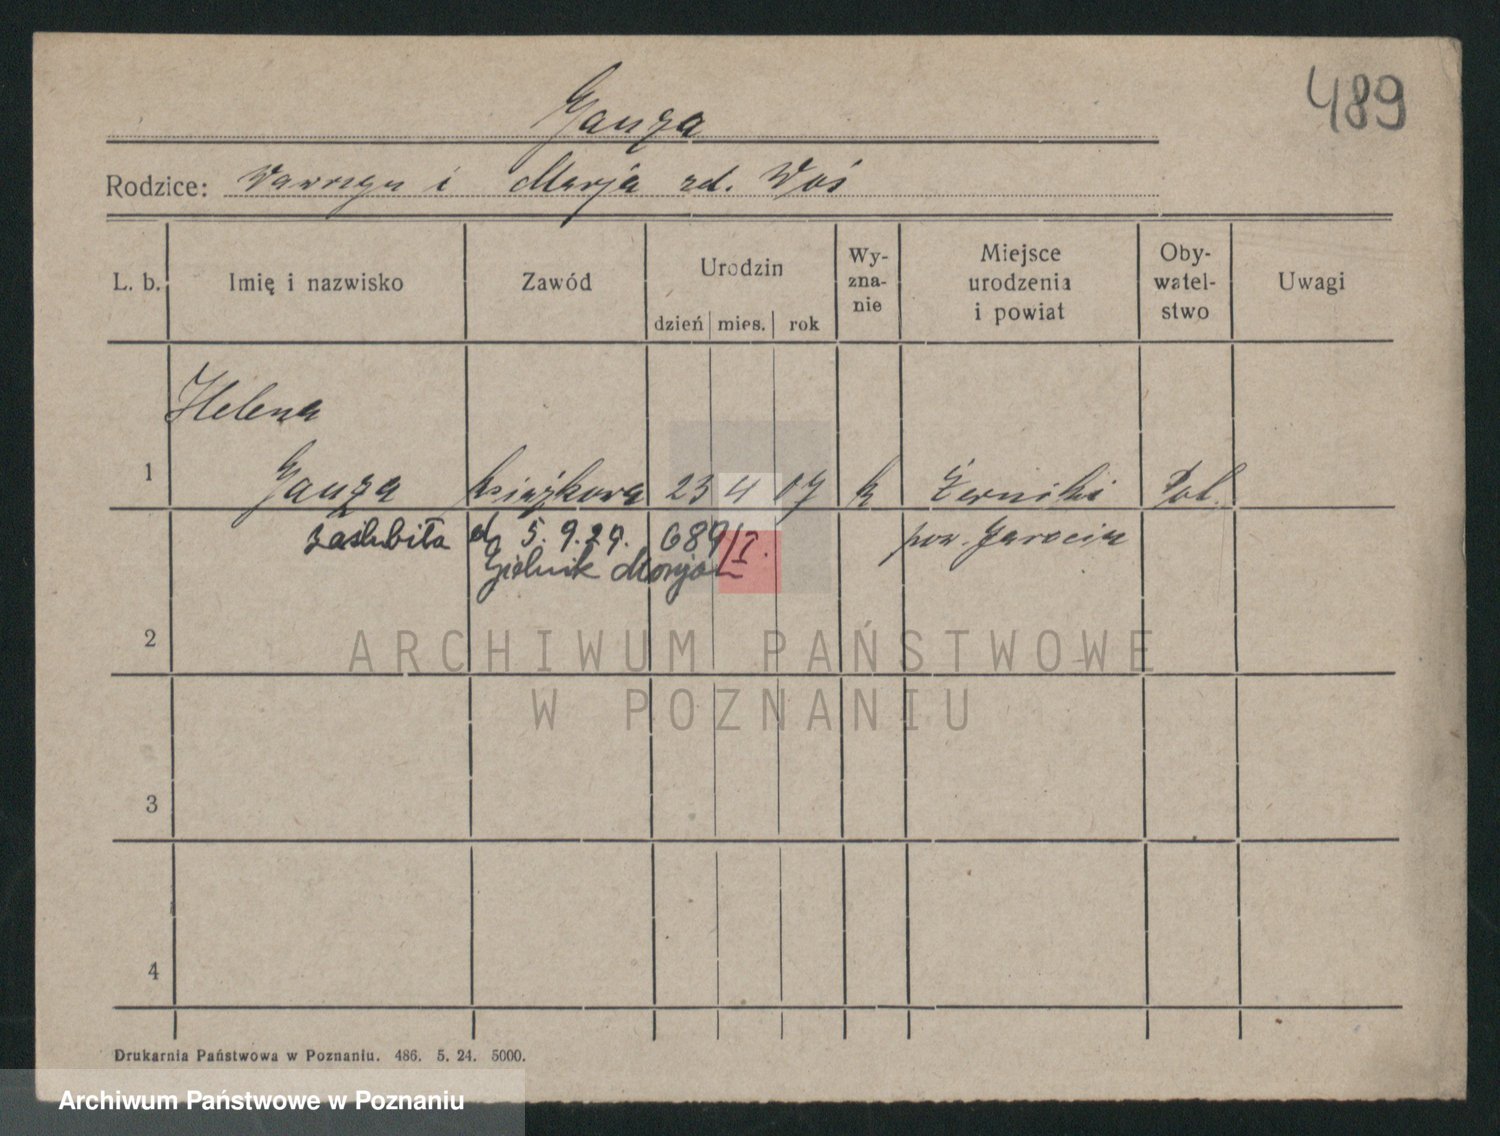 489
Ganza
Rodzice: Wawrzyn i Marja zd. Woś
L. b. Imię i nazwisko Zawód Urodzin dzień mies. rok Wy- zna- nie Miejsce urodzenia i powiat Oby- watel- stwo Uwagi
Helena
1 Ganza książkowa 23 4 07 k Żerniki Pol.
zaślubiła d. 5.9.29. 689/I. pow. Jarocin
Gielnik Marja
2
ARCHIWUM PAŃSTWOWE
W POZNANIU
3
4
Drukarnia Państwowa w Poznaniu. 486. 5. 24. 5000.
Archiwum Państwowe w Poznaniu